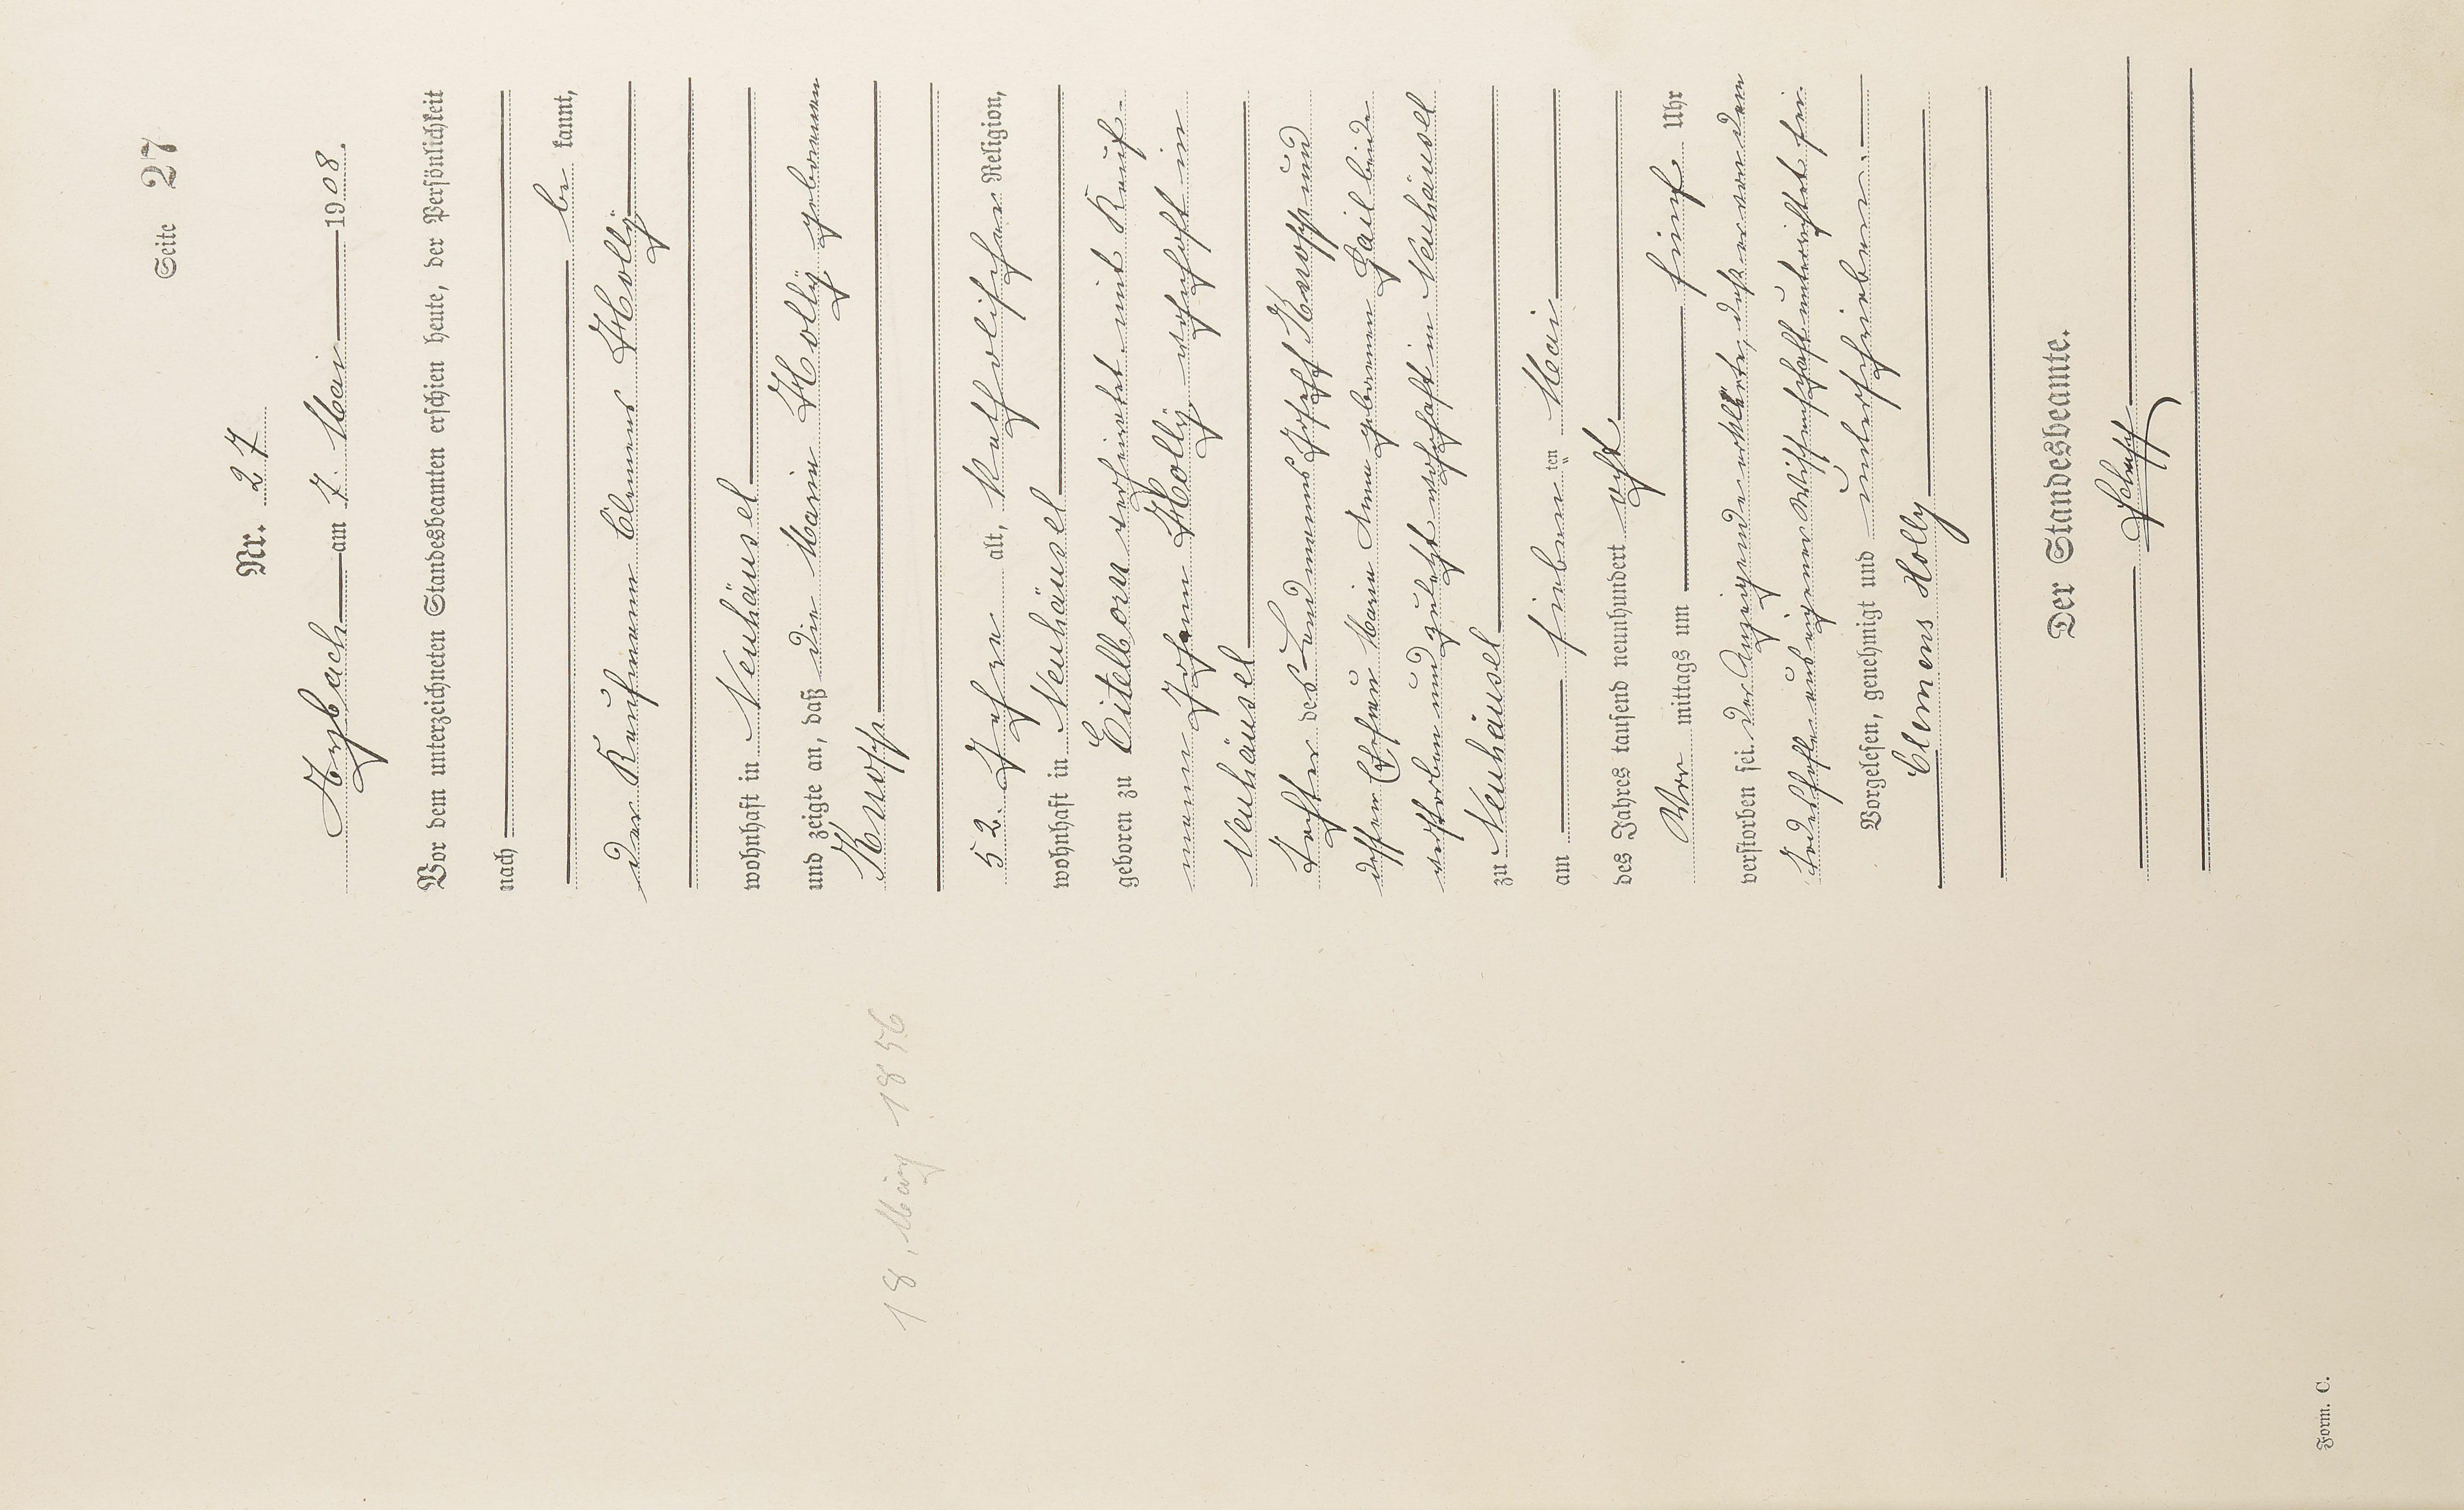 Seite 27
Nr. 27
Arzbach am 7. Mai 1908.
Vor dem unterzeichneten Standesbeamten erschien heute, der Persönlichkeit
nach
be kannt,
der Kaufmann Clemens Holly
wohnhaft in Neuhäusel
und zeigte an, daß die Maria Holly geborenen
Knopp
52 Jahre alt, katholischer Religion,
wohnhaft in Neuhäusel
geboren zu Eitelborn verheiratet mit Kauf-
mann Johann Holly wohnhaft in
Neuhäusel
Tochter des Landmanns Joseph Knopp und
dessen Ehefrau Maria Anna geborenen Hail beide
verstorben und zuletzt wohnhaft in Neuhäusel
zu Neuhäusel
am siebenten Mai
des Jahres tausend neunhundert acht
Vor mittags um fünf Uhr
verstorben sei. Der Anzeigende erklärte, daß er von dem
Todesfalle aus eigener Wissenschaft unterrichtet sei.
Vorgelesen, genehmigt und unterschrieben.
Clemens Holly
Der Standesbeamte.
18. März 1856
Form. C.